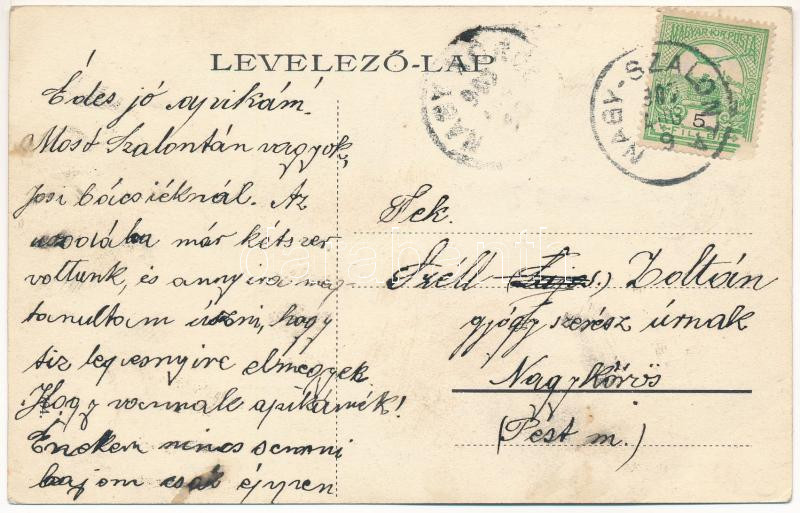 LEVELEZŐ-LAP
Édes jó apikám!
Most Szalontán vagyok,
Josi bácsiéknál. Az
uszodába már kétszer
voltunk, és annyira meg-
tanultam úszni, hogy
tiz lépésnyire elmegyek.
Hogy vannak apikámék!
Énekem nincs semmi
bajom csak éppen
MAGYAR KIR. POSTA
5
FILLÉR
NAGY-SZALONTA
NAGY
Tek.
Széll Zoltán
gyógyszerész úrnak
Nagykőrös
(Pest m.)
darabanth